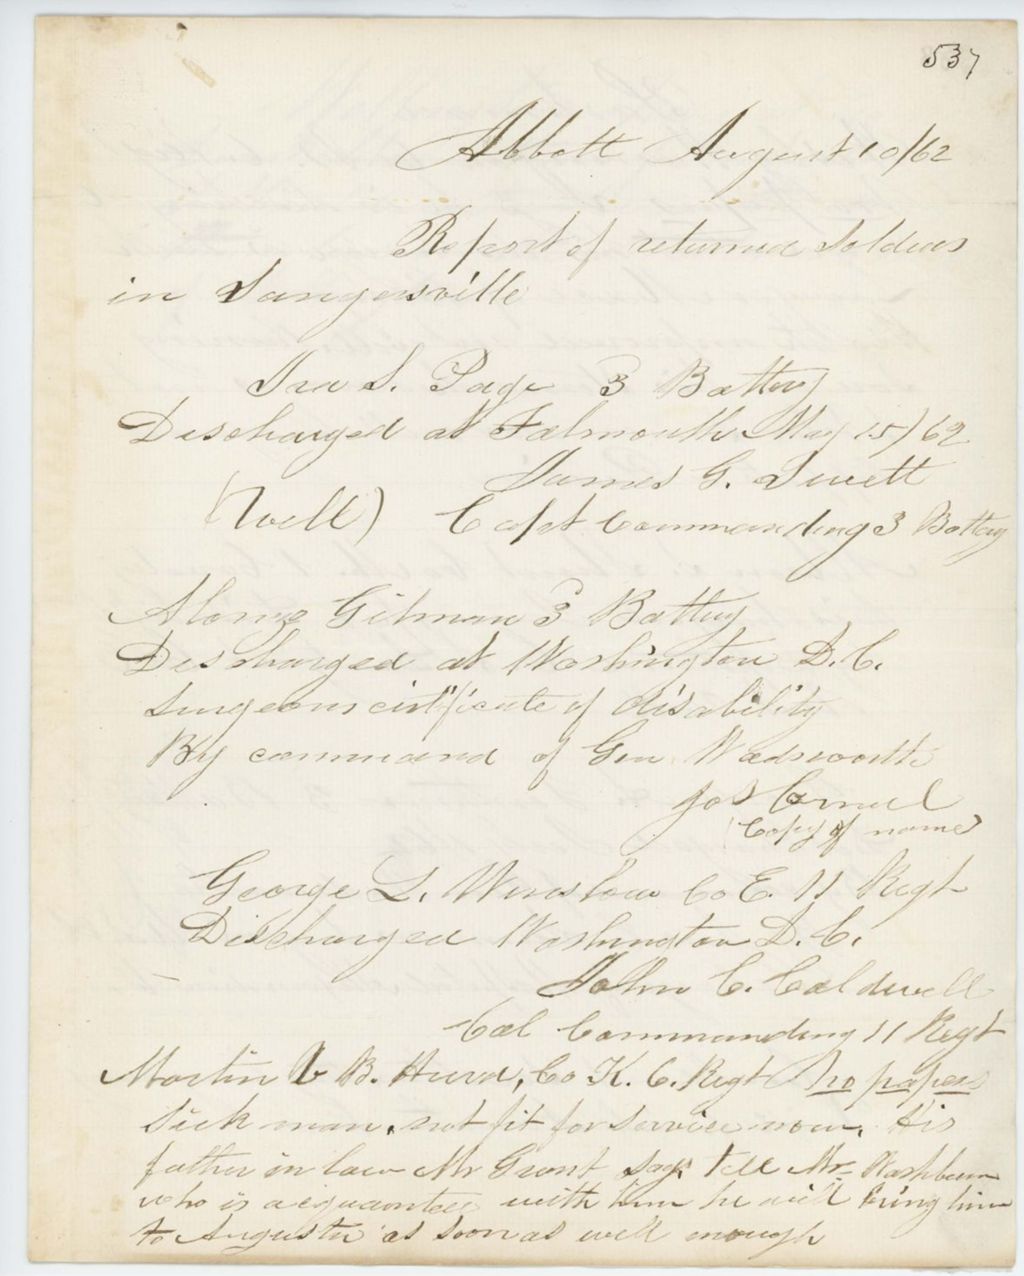 537
Abbott August 10/62
Report of returned Soldiers
in Sangerville
Ira S. Page 3 Battery
Discharged at Falmouth May 15/62
James G. Swett
(Well) Capt Commanding 3 Battery
Alonzo Gilman 3 Battery
Discharged at Washington D.C.
Surgeons certificate of disability
By command of Gen Wadsworth
Jos
(Copy of name)
George L. Winslow Co E. 11 Regt
Discharged Washington D.C.
John C. Caldwell
Col Commanding 11 Regt
Martin V B. Hurd, Co K. 6. Regt no papers
Sick man, not fit for Service now. His
father in law Mr Grant says tell Mr. Washburn
who is acquainted with him he will bring him
to Augusta as soon as well enough